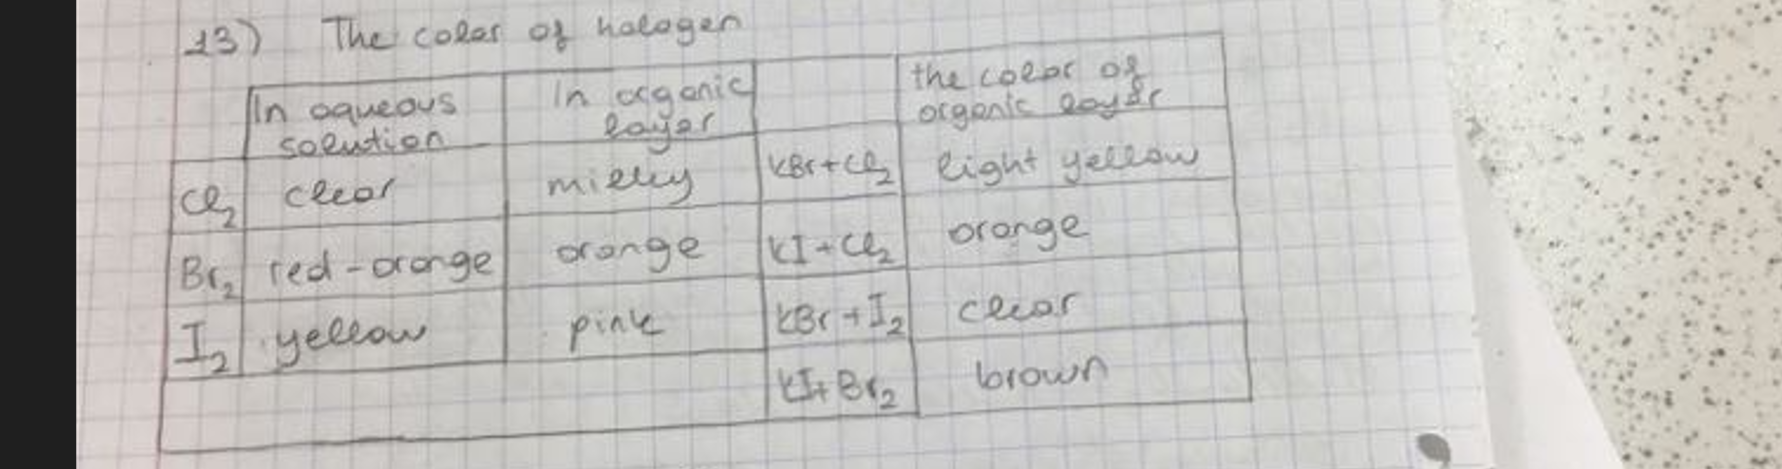 13) The color of halogen
In aqueous solution | In organic layer | | the color of organic layer
Cl₂ | clear | milky | KBr+Cl₂ | light yellow
Br₂ | red-orange | orange | KI+Cl₂ | orange
I₂ | yellow | pink | KBr+I₂ | clear
KI+Br₂ | brown